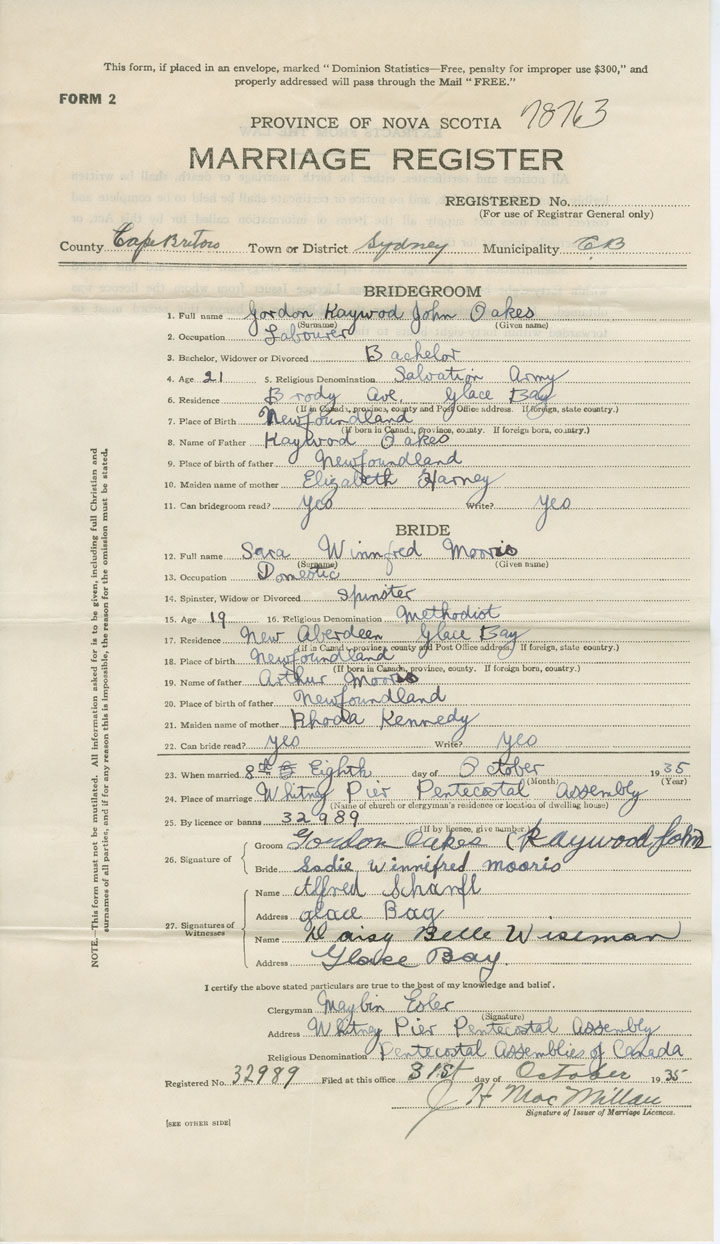 This form, if placed in an envelope, marked "Dominion Statistics—Free, penalty for improper use $300," and
properly addressed will pass through the Mail "FREE."
FORM 2
PROVINCE OF NOVA SCOTIA 78763
MARRIAGE REGISTER
REGISTERED No.
(For use of Registrar General only)
County Cape Breton Town or District Sydney Municipality C.B
BRIDEGROOM
1. Full name Gordon Haywood John Oakes
(Surname) (Given name)
2. Occupation Labourer
3. Bachelor, Widower or Divorced Bachelor
4. Age 21 5. Religious Denomination Salvation Army
6. Residence Brody Ave, Glace Bay
(If in Canada, province, county and Post Office address. If foreign, state country.)
7. Place of Birth Newfoundland
(If born in Canada, province, county. If foreign born, country.)
8. Name of Father Haywood Oakes
9. Place of birth of father Newfoundland
10. Maiden name of mother Elizabeth Harney
11. Can bridegroom read? yes Write? yes
BRIDE
12. Full name Sara Winnfred Mooris
(Surname) (Given name)
13. Occupation Domestic
14. Spinster, Widow or Divorced Spinster
15. Age 19 16. Religious Denomination Methodist
17. Residence New Aberdeen Glace Bay
(If in Canada, province, county and Post Office address. If foreign, state country.)
18. Place of birth Newfoundland
(If born in Canada, province, county. If foreign born, country.)
19. Name of father Arthur Mooris
20. Place of birth of father Newfoundland
21. Maiden name of mother Rhoda Kennedy
22. Can bride read? yes Write? yes
23. When married 8th Eighth day of October 1935
(Month) (Year)
24. Place of marriage Whitny Pier Pentecostal Assembly
(Name of church or clergyman's residence or location of dwelling house)
25. By licence or banns 32989
(If by licence, give number)
26. Signature of
Groom Gordon Oakes (Haywood John
Bride Sadie Winnifred mooris
27. Signatures of Witnesses
Name Alfred
Address glace Bay
Name Daisy Belle Wiseman
Address Glace Bay.
I certify the above stated particulars are true to the best of my knowledge and belief.
Clergyman Maybin Esler
(Signature)
Address Whitney Pier Pentecostal Assembly
Religious Denomination Pentecostal Assemblies of Canada
Registered No. 32989 Filed at this office 31st day of October 1935
J H MacMillan
Signature of Issuer of Marriage Licences.
[SEE OTHER SIDE]
NOTE.—This form must not be mutilated. All information asked for is to be given, including full Christian and
surnames of all parties, and if for any reason this is impossible, the reason for the omission must be stated.